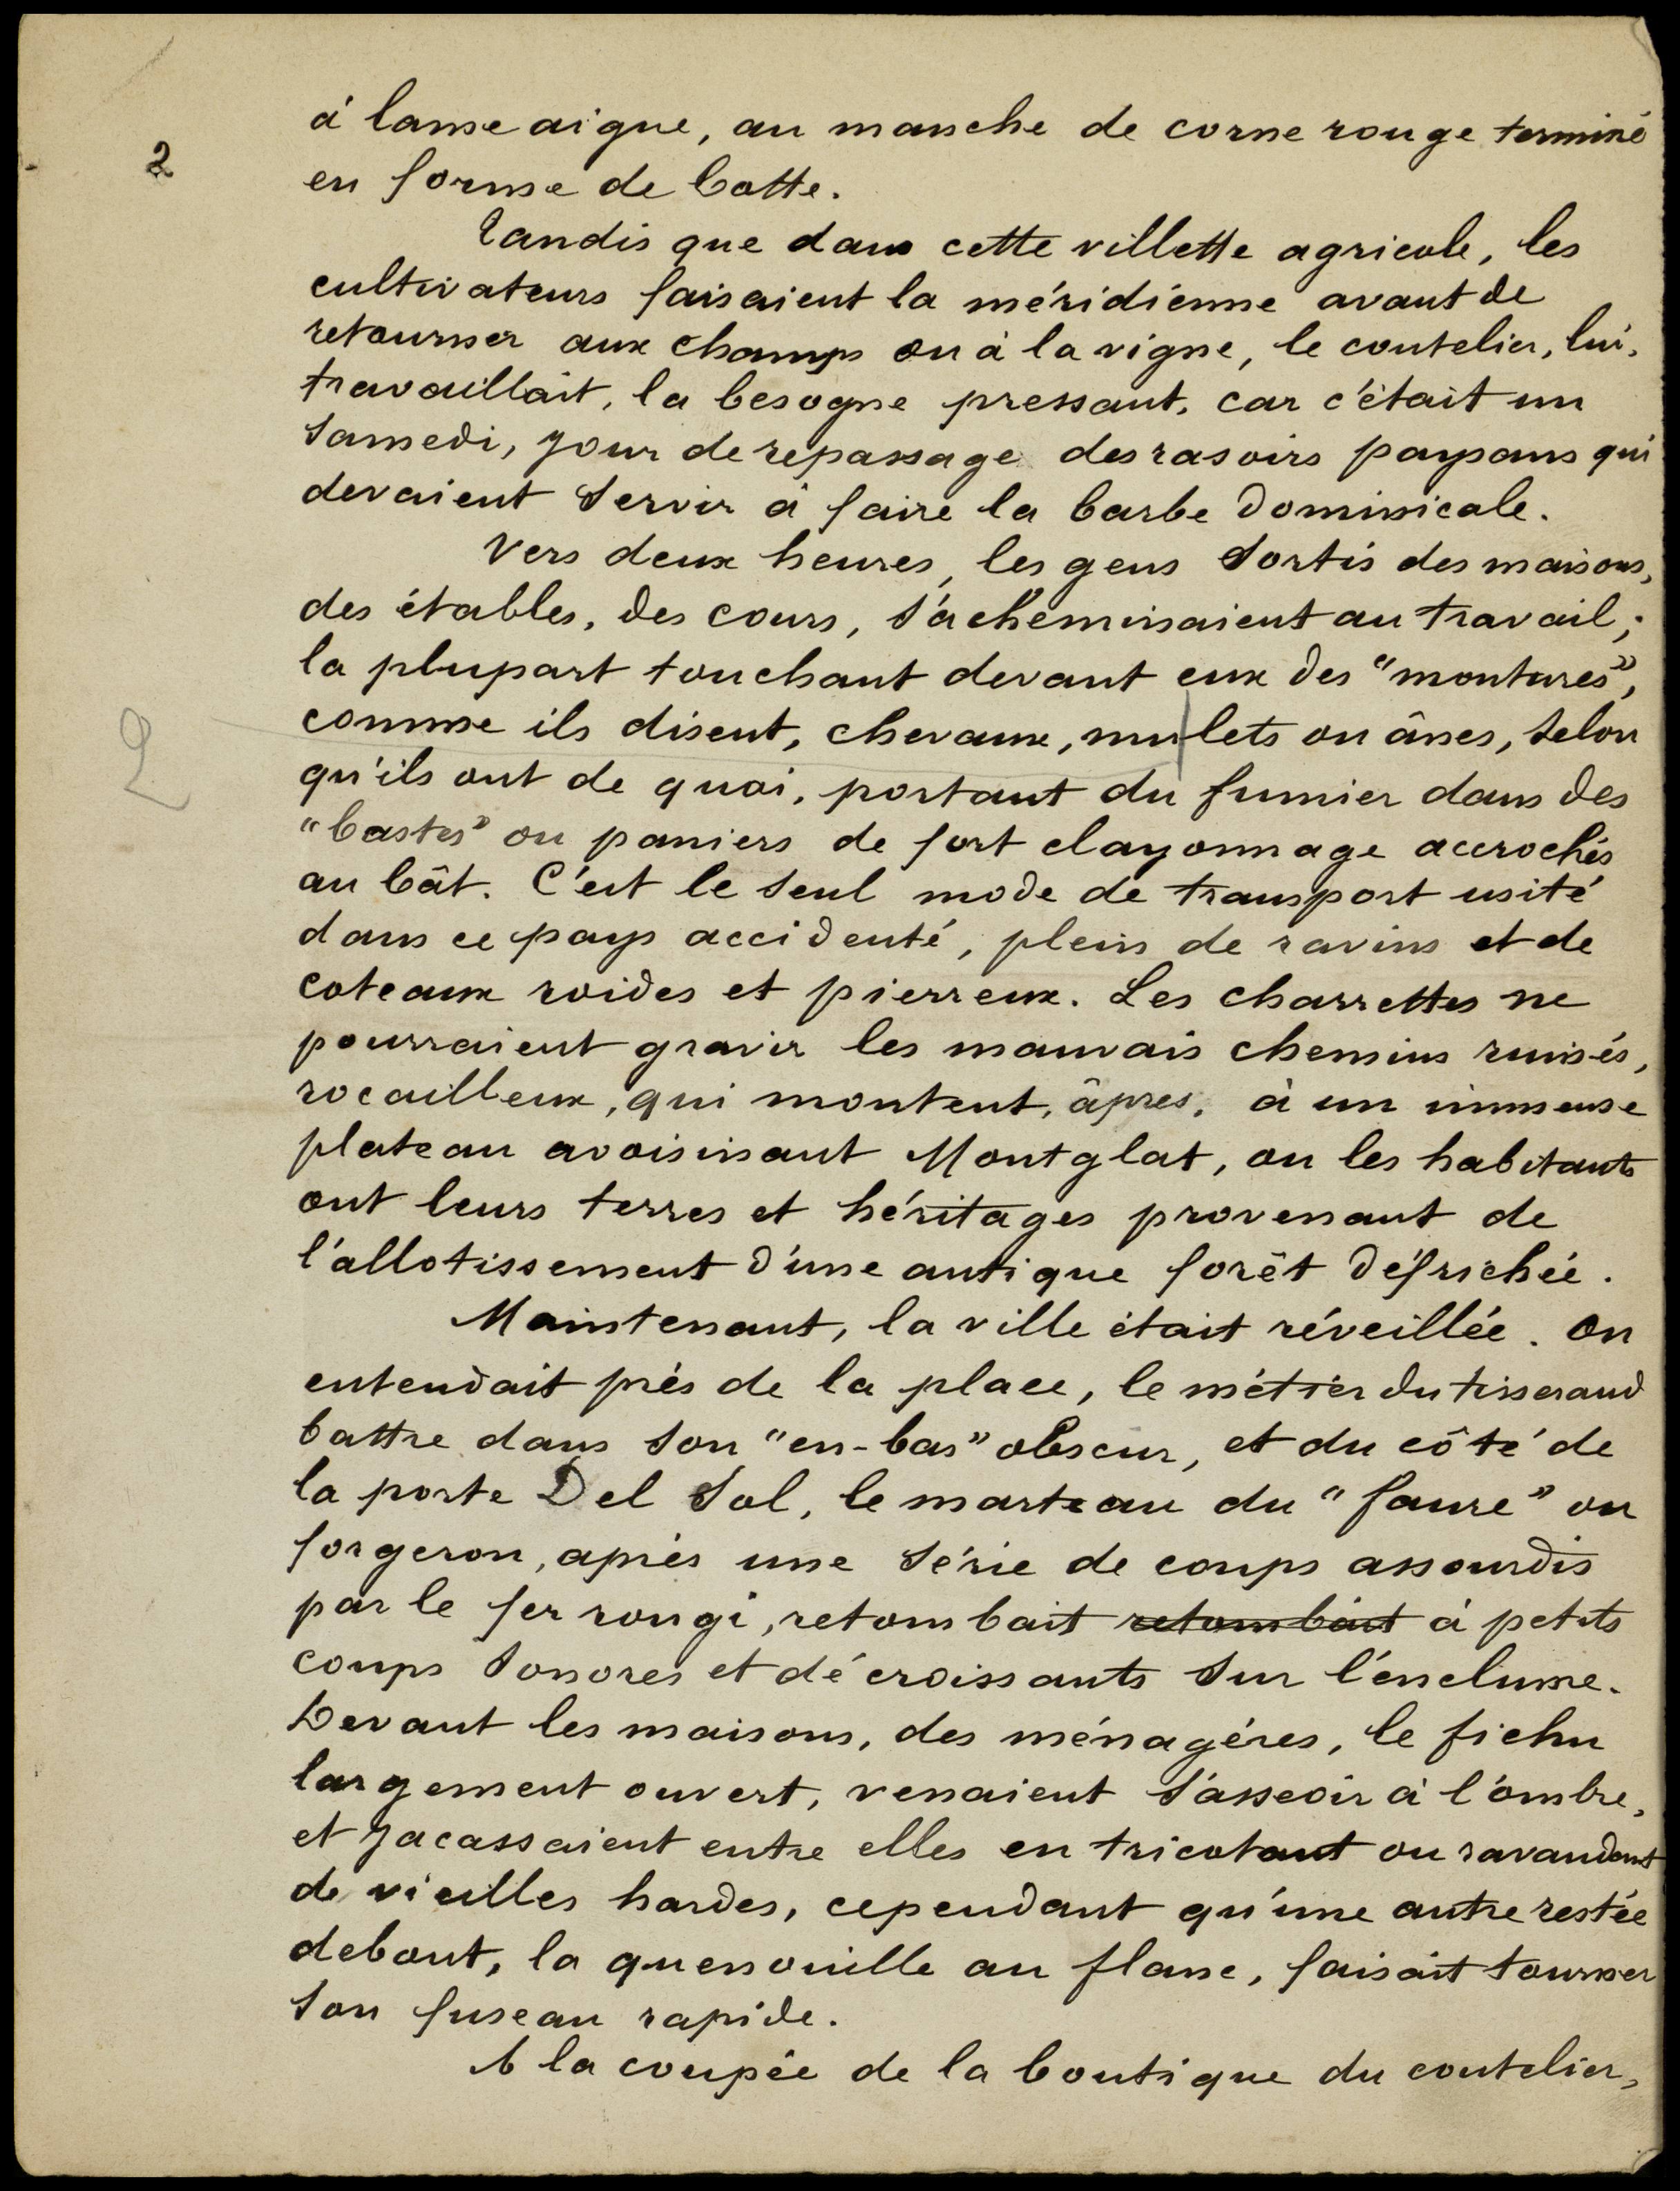 2
à lame aigue, au manche de corne rouge terminé
en forme de botte.
Tandis que dans cette villette agricole, les
cultivateurs faisaient la méridienne avant de
retourner aux champs ou à la vigne, le coutelier, lui,
travaillait, la besogne pressant, car c'était un
samedi, jour de repassage des rasoirs paysans qui
devaient servir à faire la barbe dominicale.
Vers deux heures, les gens sortis des maisons,
des étables, des cours, s'acheminaient au travail;
la plupart touchant devant eux des "montures",
comme ils disent, chevaux, mulets ou ânes, selon
2
qu'ils ont de quoi, portant du fumier dans des
"bastes" ou paniers de fort clayonnage accrochés
au bât. C'est le seul mode de transport usité
dans ce pays accidenté, plein de ravins et de
coteaux roides et pierreux. Les charrettes ne
pourraient gravir les mauvais chemins ruinés,
rocailleux, qui montent, âpres, à un immense
plateau avoisinant Montglat, ou les habitants
ont leurs terres et héritages provenant de
l'allotissement d'une antique forêt défrichée.
Maintenant, la ville était réveillée. On
entendait près de la place, le métier du tisserand
battre dans son "en-bas" obscur, et du côté de
la porte Del Sol, le marteau du "faure" ou
forgeron, après une série de coups assourdis
par le fer rougi, retombait retombait à petits
coups sonores et décroissants sur l'enclume.
Devant les maisons, des ménagères, le fichu
largement ouvert, venaient s'asseoir à l'ombre,
et jacassaient entre elles en tricotant ou ravaudant
de vieilles hardes, cependant qu'une autre restée
debout, la quenouille au flanc, faisait tourner
son fuseau rapide.
A la coupée de la boutique du coutelier,